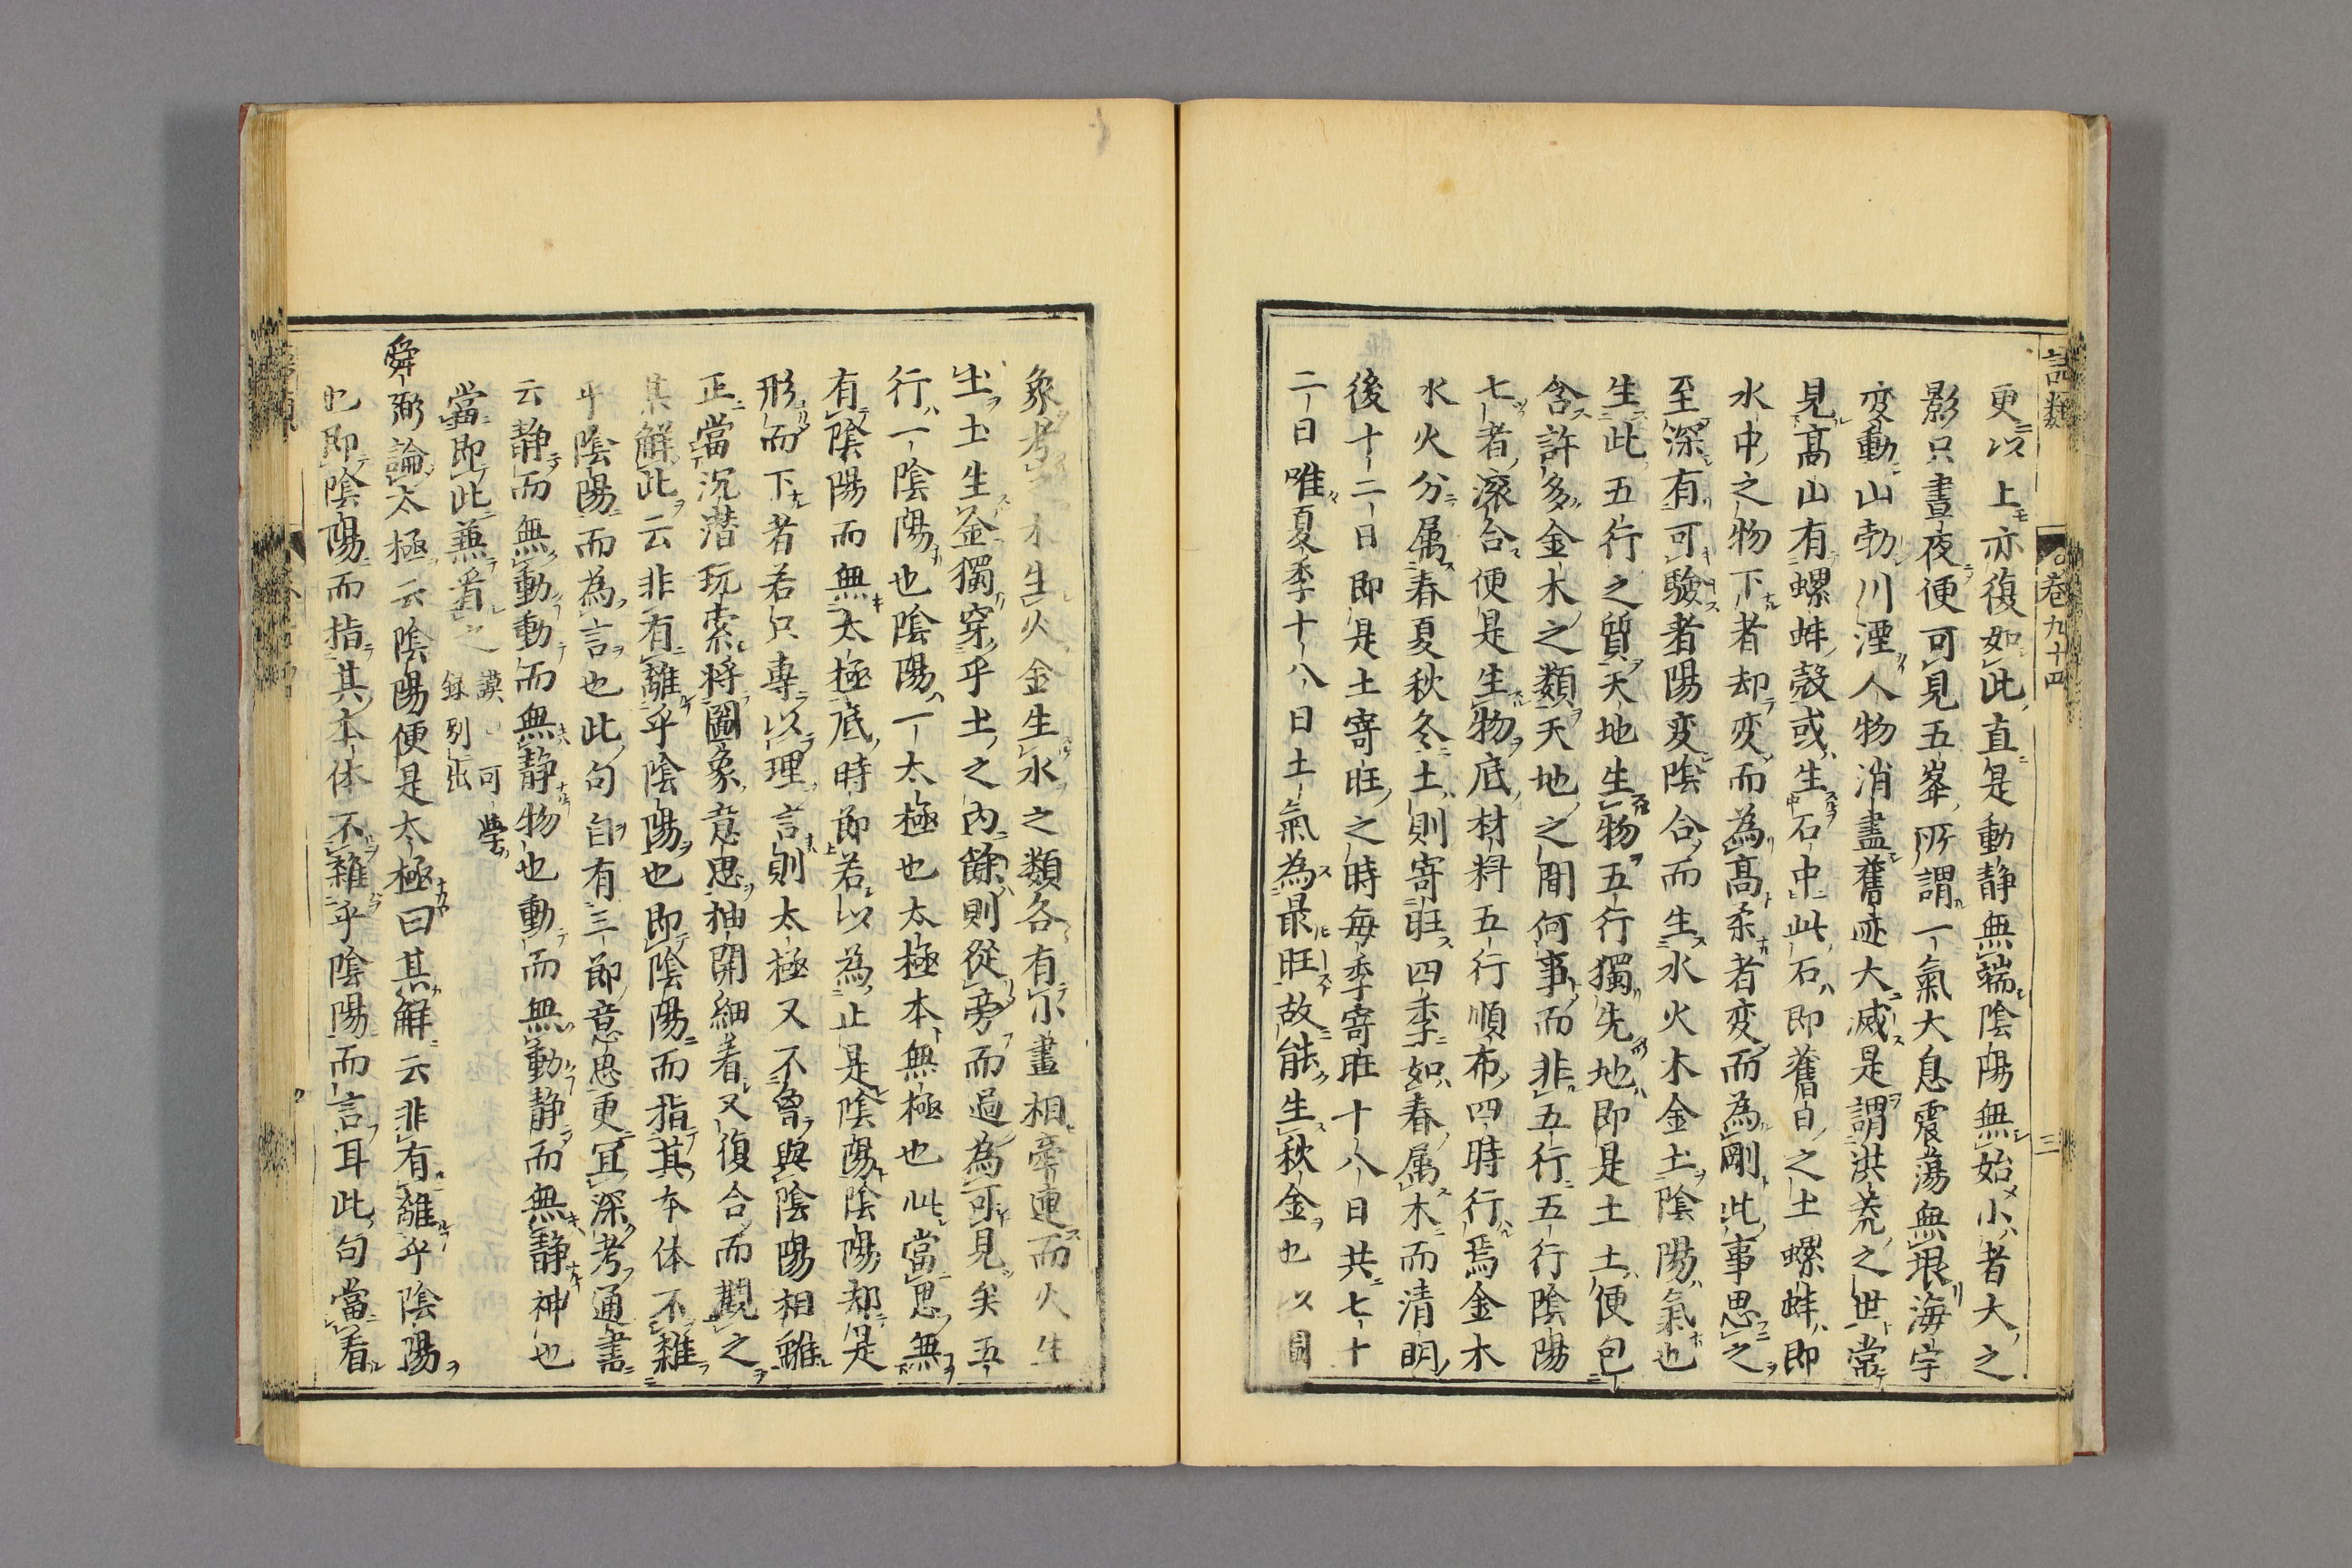 語類 巻九十四 三
更以上亦復如此直是動静無端陰陽無始小者大之
影只晝夜便可見五峯所謂一氣大息震蕩無垠海宇
変動山勃川湮人物消盡舊迹大滅是謂洪荒之世常
見高山有螺蚌殻或生石中此石即舊日之土螺蚌即
水中之物下者却変而為高柔者変而為剛此事思之
至深有可驗者陽変陰合而生水火木金土陰陽氣也
生此五行之質天地生物五行獨先地即是土土便包
含許多金木之類天地之間何事而非五行五行陰陽
七者滚合便是生物底材料五行順布四時行焉金木
水火分属春夏秋冬土則寄旺四季如春属木而清明
後十二日即是土寄旺之時毎季寄旺十八日共七十
二日唯夏季十八日土氣為最旺故能生秋金也以圖
象考之木生火金生水之類各有小畫相牽連而火生
土土生金獨穿乎土之内餘則從旁而過為可見矣五
行一陰陽也陰陽一太極也太極本無極也此當思無
有陰陽而無太極底時節若以為止是陰陽陰陽却是
形而下者若只專以理言則太極又不曾與陰陽相離
正當沉潜玩索將圖象意思抽開細看又復合而觀之
某解此云非有離乎陰陽也即陰陽而指其本体不雜
乎陰陽而為言也此句自有三節意思更冝深考通書
云静而無動動而無静物也動而無動静而無静神也
當即此兼看之 謨 可學
録別出
舜弼論太極云陰陽便是太極曰某解云非有離乎陰陽
也即陰陽而指其本体不雜乎陰陽而言耳此句當看